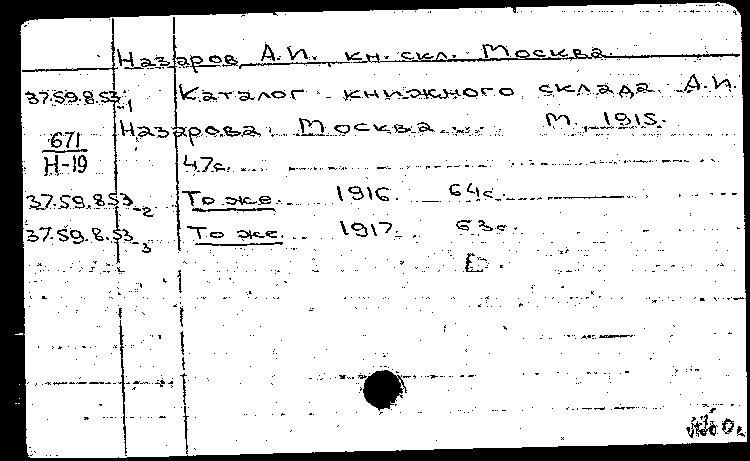 Назаров, А.И. кн. скл. Москва.
37.59.8.53-1 Каталог книжного склада А.И.
Назарова. Москва. М., 1915.
671
Н-19
47с.
37.59.853-2 То же. 1916. 64с.
37.59.8.53-3 То же. 1917. 63с.